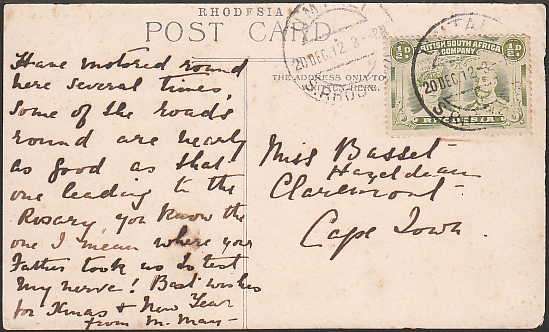 RHODESIA
POST CARD
THE ADDRESS ONLY TO
20 DEC 12
S. RHOD
½d.
BRITISH SOUTH AFRICA
COMPANY
½d.
20 DEC 12
RHODESIA
Have motored round
here several times,
Some of the roads
round are nearly
as good as that
one leading to the
Rosary, you know the
one I mean where your
Father took us to test
my nerve! Best wishes
for Xmas & New Year
from M. May-
Miss Basset
Hazeldean
Claremont
Cape Town.